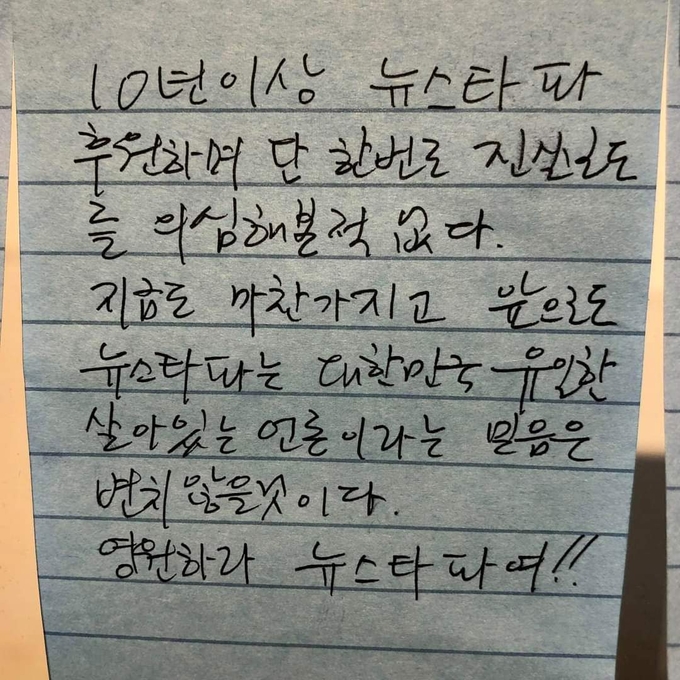 10년이상 뉴스타파
후원하며 단 한번로 진실보도
를 의심해본적 없다.
지금도 마찬가지고 앞으로도
뉴스타파는 대한민국 유일한
살아있는 언론이라는 믿음은
변치 않을것이다.
영원하라 뉴스타파여!!